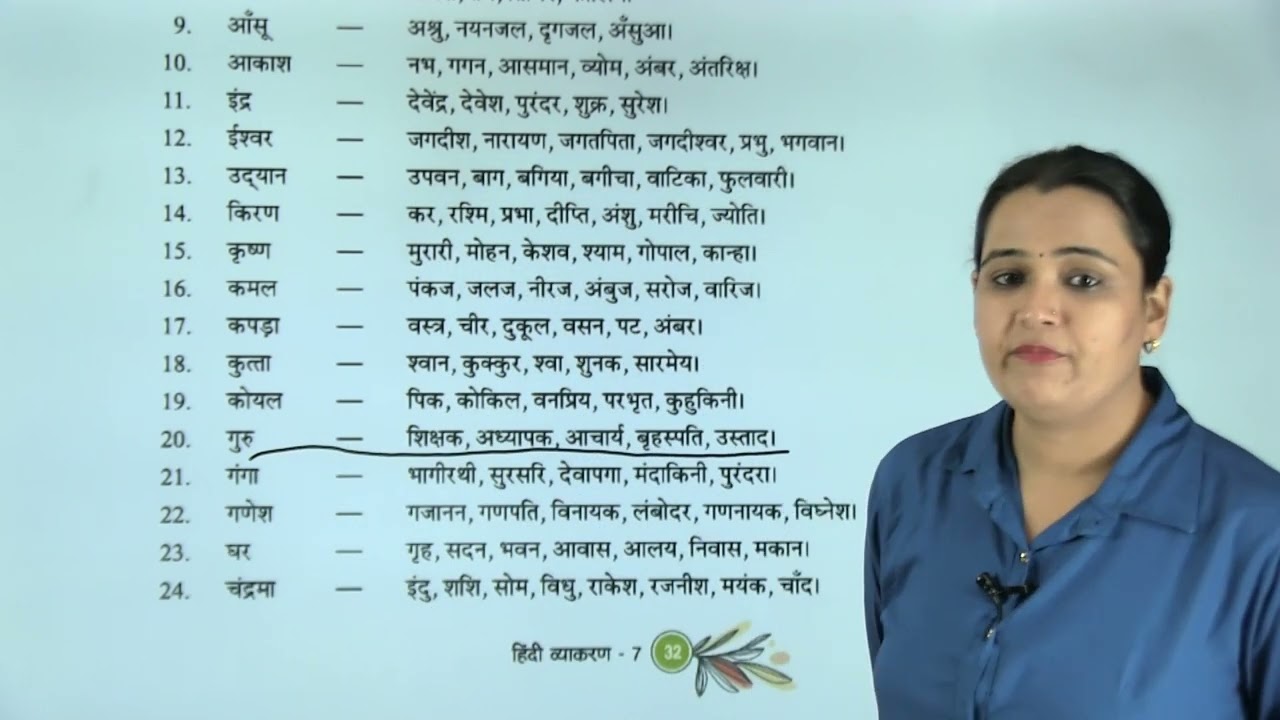 9. आँसू — अश्रु, नयनजल, दृगजल, अँसुआ।
10. आकाश — नभ, गगन, आसमान, व्योम, अंबर, अंतरिक्ष।
11. इंद्र — देवेंद्र, देवेश, पुरंदर, शुक्र, सुरेश।
12. ईश्वर — जगदीश, नारायण, जगतपिता, जगदीश्वर, प्रभु, भगवान।
13. उद्‌यान — उपवन, बाग, बगिया, बगीचा, वाटिका, फुलवारी।
14. किरण — कर, रश्मि, प्रभा, दीप्ति, अंशु, मरीचि, ज्योति।
15. कृष्ण — मुरारी, मोहन, केशव, श्याम, गोपाल, कान्हा।
16. कमल — पंकज, जलज, नीरज, अंबुज, सरोज, वारिज।
17. कपड़ा — वस्त्र, चीर, दुकूल, वसन, पट, अंबर।
18. कुत्ता — श्वान, कुक्कुर, श्वा, शुनक, सारमेय।
19. कोयल — पिक, कोकिल, वनप्रिय, परभृत, कुहुकिनी।
20. गुरु — शिक्षक, अध्यापक, आचार्य, बृहस्पति, उस्ताद।
21. गंगा — भागीरथी, सुरसरि, देवापगा, मंदाकिनी, पुरंदरा।
22. गणेश — गजानन, गणपति, विनायक, लंबोदर, गणनायक, विघ्नेश।
23. घर — गृह, सदन, भवन, आवास, आलय, निवास, मकान।
24. चंद्रमा — इंदु, शशि, सोम, विधु, राकेश, रजनीश, मयंक, चाँद।
हिंदी व्याकरण - 7 32